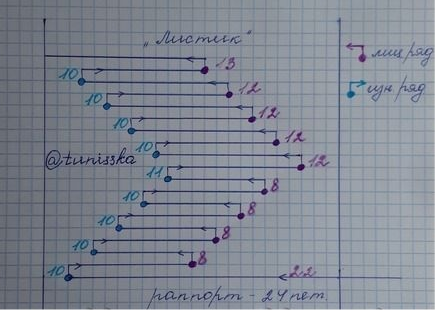 „Листик"
лиц.ряд
изн.ряд
13
10
12
10
12
10
12
@tunisska
10
12
11
8
10
8
10
8
10
8
10
22
раппорт - 24 пет.